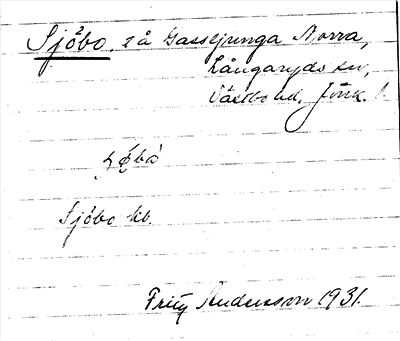 Sjöbo, rå Gassljunga Norra,
Långaryds sn,
Västbo hd, Jönk. l.
Sjöbo kb.
Fritz Andersson 1931.